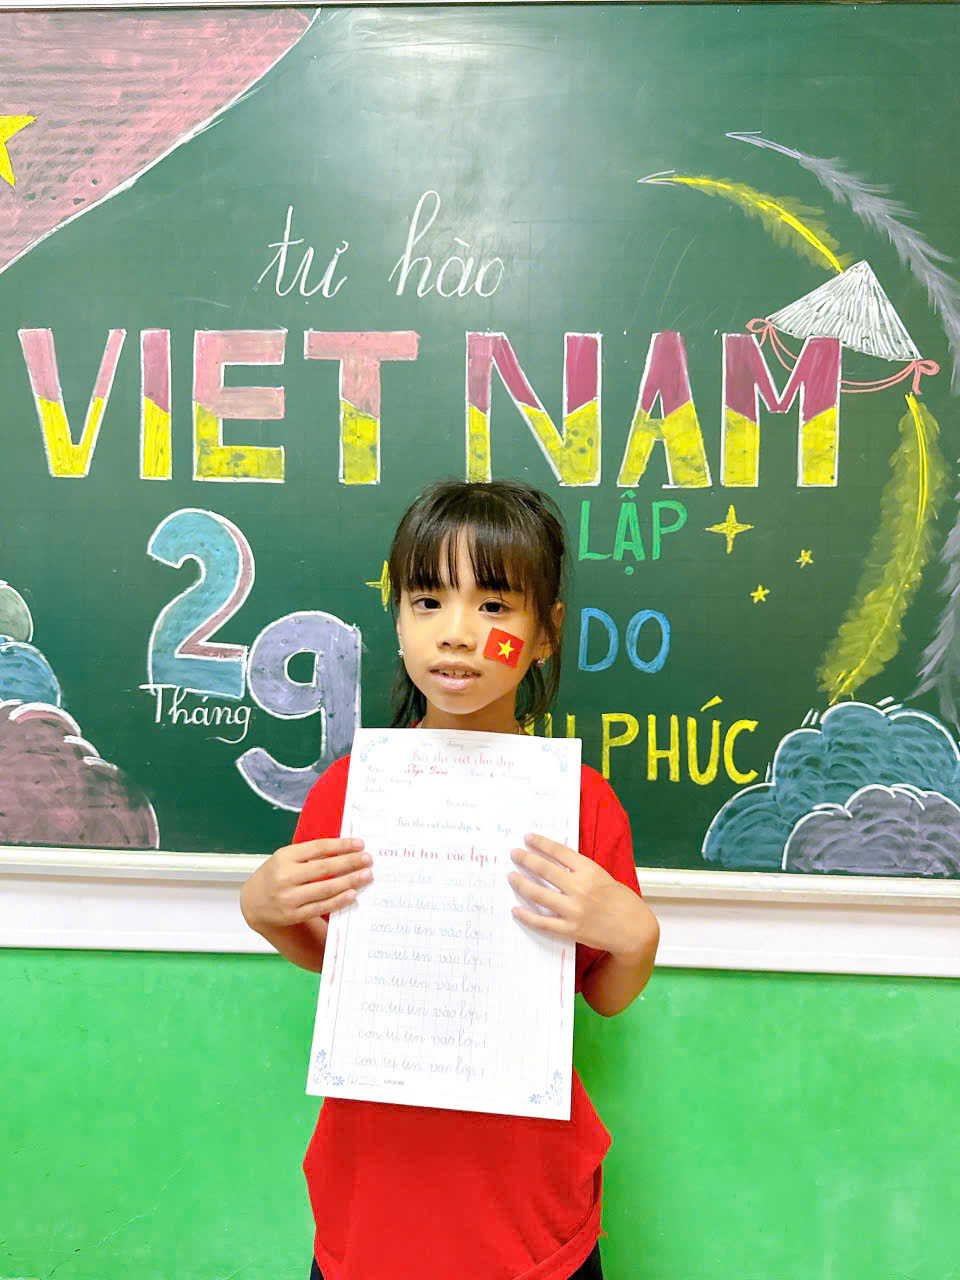 tự hào
VIET NAM
2
9
Tháng
LẬP
DO
PHÚC
Bài thi viết chữ đẹp
Bài thi viết chữ đẹp
con tự tin vào lớp 1
con tự tin vào lớp 1
con tự tin vào lớp 1
con tự tin vào lớp 1
con tự tin vào lớp 1
con tự tin vào lớp 1
con tự tin vào lớp 1
con tự tin vào lớp 1
con tự tin vào lớp 1